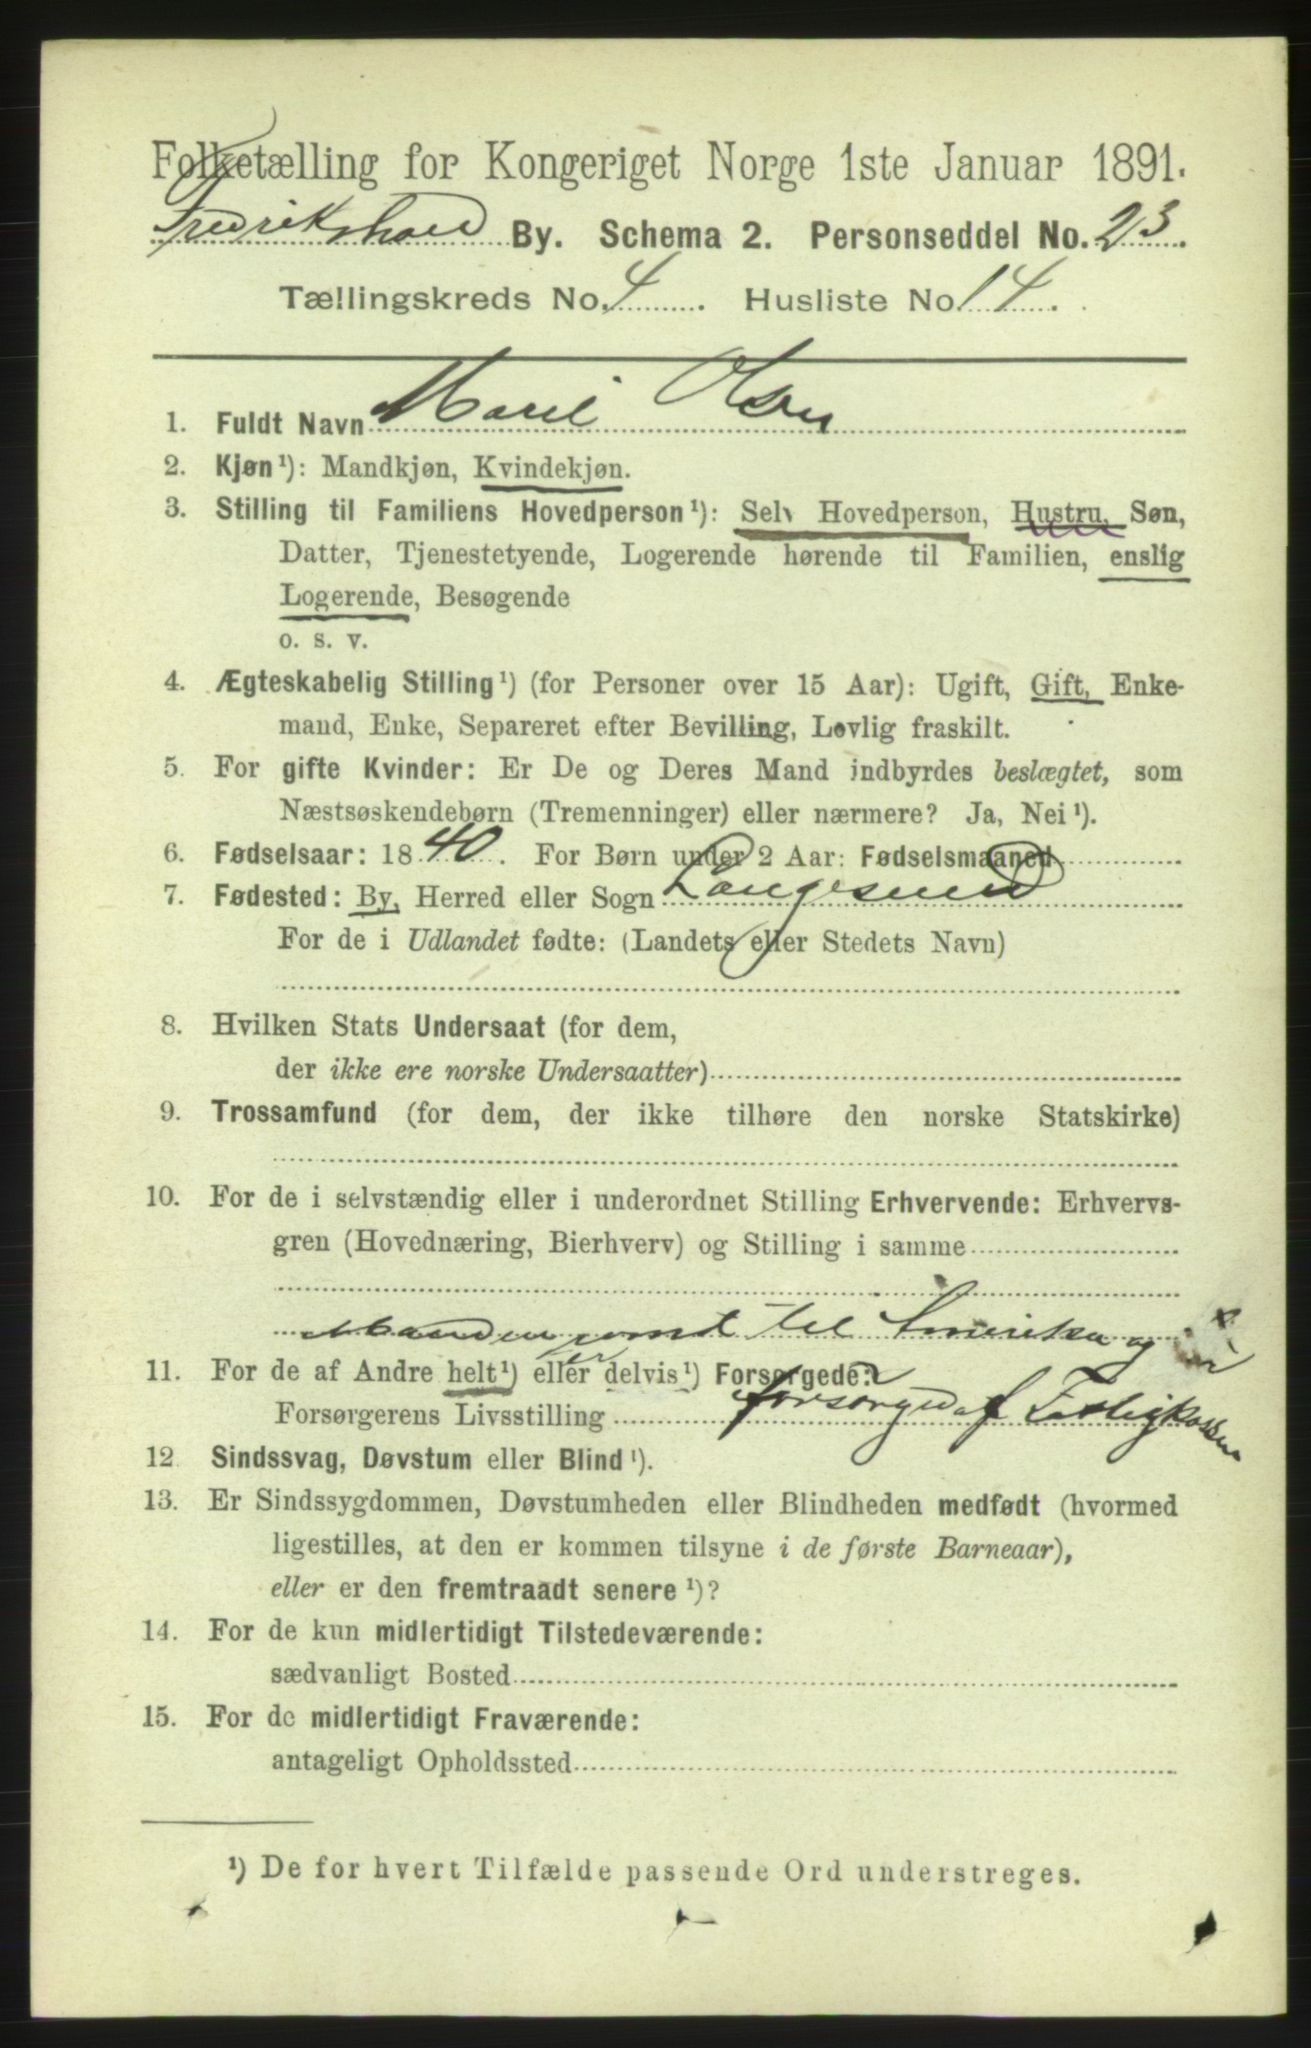 Folketælling for Kongeriget Norge 1ste Januar 1891.
Fredrikshald By. Schema 2. Personseddel No. 23.
Tællingskreds No. 4. Husliste No 14.
1. Fuldt Navn Olsen
2. Kjøn ¹): Mandkjøn, Kvindekjøn.
3. Stilling til Familiens Hovedperson ¹): Selv Hovedperson, Hustru, Søn,
Datter, Tjenestetyende, Logerende hørende til Familien, enslig
Logerende, Besøgende
o. s. v.
4. Ægteskabelig Stilling ¹) (for Personer over 15 Aar): Ugift, Gift, Enke-
mand, Enke, Separeret efter Bevilling, Lovlig fraskilt.
5. For gifte Kvinder: Er De og Deres Mand indbyrdes beslægtet, som
Næstsøskendebørn (Tremenninger) eller nærmere? Ja, Nei ¹).
6. Fødselsaar: 1840. For Børn under 2 Aar: Fødselsmaaned
7. Fødested: By, Herred eller Sogn Langesund
For de i Udlandet fødte: (Landets eller Stedets Navn)
8. Hvilken Stats Undersaat (for dem,
der ikke ere norske Undersaatter)
9. Trossamfund (for dem, der ikke tilhøre den norske Statskirke)
10. For de i selvstændig eller i underordnet Stilling Erhvervende: Erhvervs-
gren (Hovednæring, Bierhverv) og Stilling i samme
Manden rømt til Amerika og
er
11. For de af Andre helt ¹) eller delvis ¹) Forsørgede:
Forsørgerens Livsstilling forsørges af Fattigkassen
12. Sindssvag, Døvstum eller Blind ¹).
13. Er Sindssygdommen, Døvstumheden eller Blindheden medfødt (hvormed
ligestilles, at den er kommen tilsyne i de første Barneaar),
eller er den fremtraadt senere ¹)?
14. For de kun midlertidigt Tilstedeværende:
sædvanligt Bosted
15. For de midlertidigt Fraværende:
antageligt Opholdssted
¹) De for hvert Tilfælde passende Ord understreges.